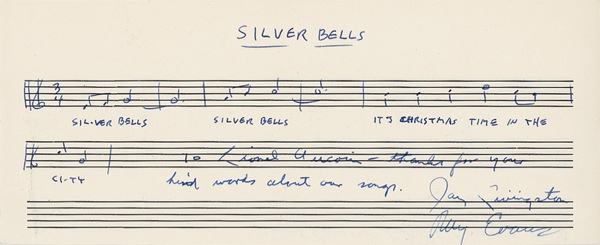 SILVER BELLS
3
4
SIL-VER BELLS SILVER BELLS IT'S CHRISTMAS TIME IN THE
To Lionel Aucoin – thanks for your
CI-TY kind words about our songs.
Jay Livingston
Ray Evans